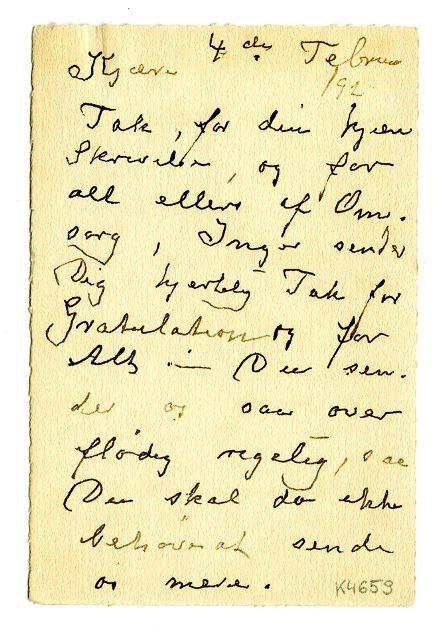 4 de Februar
Kjære
192
Tak, for din kjære
Skrivelse, og for
alt ellers af Om-
sorg, Inger sender
Dig hjertelig Tak for
Gratulation og for
Alt — Du sen-
der os saa over
flødig regelig, saa
Du skal da ikke
behøve at sende
os mere.
K4659